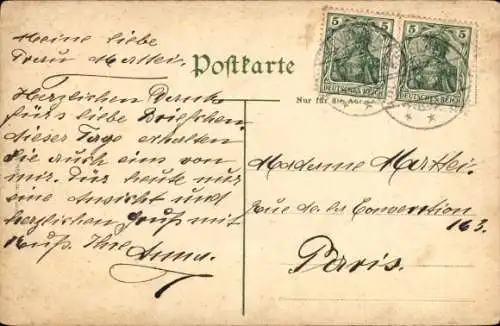 Meine liebe
Frau Mattei.
Herzlichen Dank
fürs liebe Briefchen.
dieser Tage erhalten
Sie auch eins von
mir. Für heute nur
eine Ansicht und
herzlichen Gruß mit
Kuß. Ihre Anna.
Postkarte
Nur für die Adresse
5 5
DEUTSCHES REICH
5 5
DEUTSCHES REICH
Madame Mattei.
Rue de la Convention
163.
Paris.